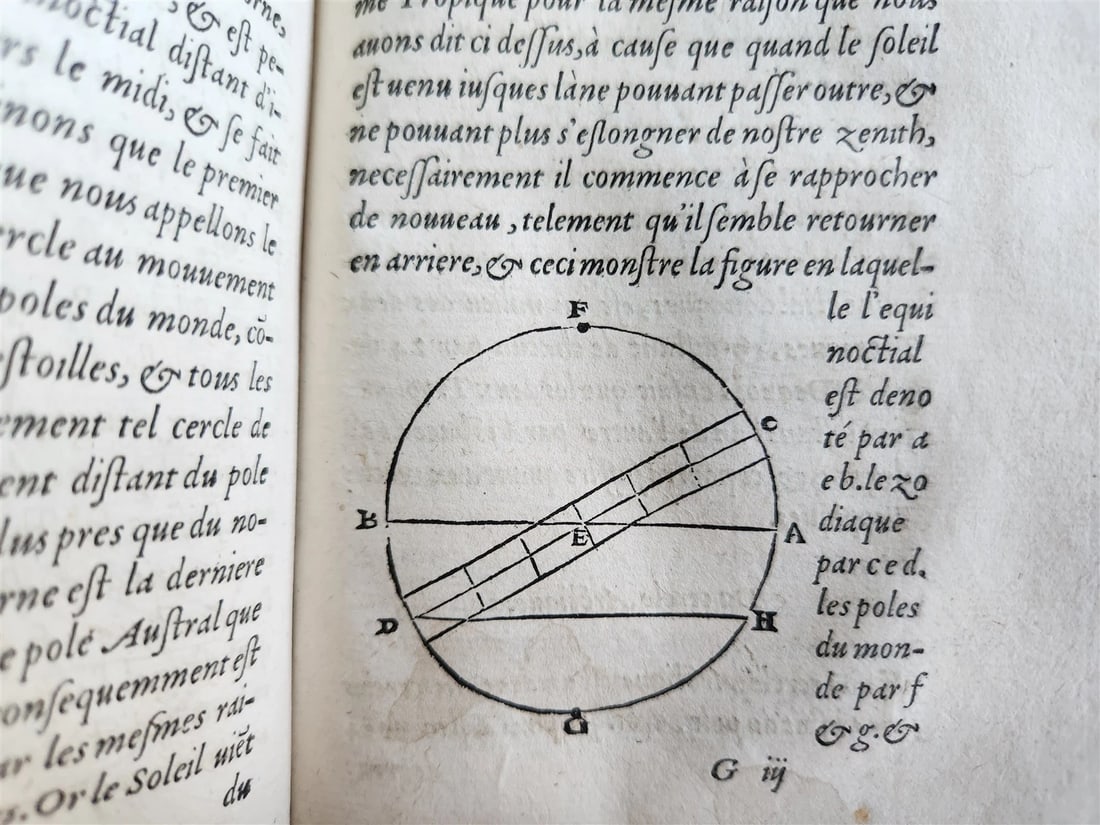 & est pe-
noctial distant d'i-
rs le midi, & se fait
nons que le premier
ue nous appellons le
rcle au mouuement
poles du monde, cō-
stoilles, & tous les
ement tel cercle de
ent distant du pole
lus pres que du no-
rne est la derniere
e pole Austral que
onsequemment est
ar les mesmes rai-
s. Or le Soleil uiēt
du
me Tropique pour la mesme raison que nous
auons dit ci dessus, à cause que quand le soleil
est uenu iusques là ne pouuant passer outre, &
ne pouuant plus s'eslongner de nostre zenith,
necessairement il commence à se rapprocher
de nouueau, telement qu'il semble retourner
en arriere, & ceci monstre la figure en laquel-
le l'equi
noctial
est deno
té par a
e b. le zo
diaque
par c e d,
les poles
du mon-
de par f
& g. &
F
C
B
E
A
D
H
G
G iij